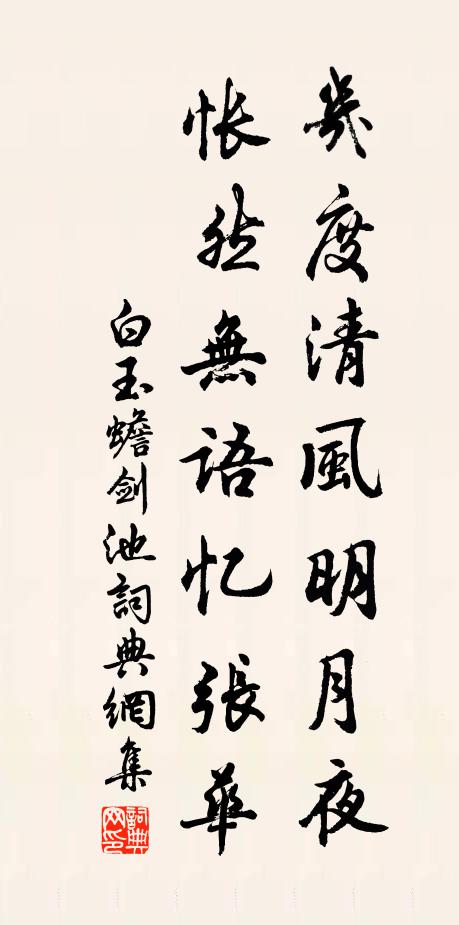 幾度清風明月夜
悵然無語忆張華
白玉蟾劍池詞典網集
詞典网印